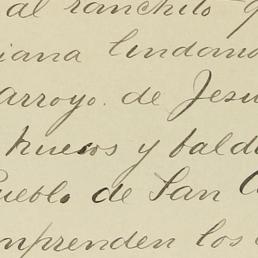 al ranchito
iana lindando
arroyo. de Jesu
huecos y bald
Pueblo de San
mprenden los